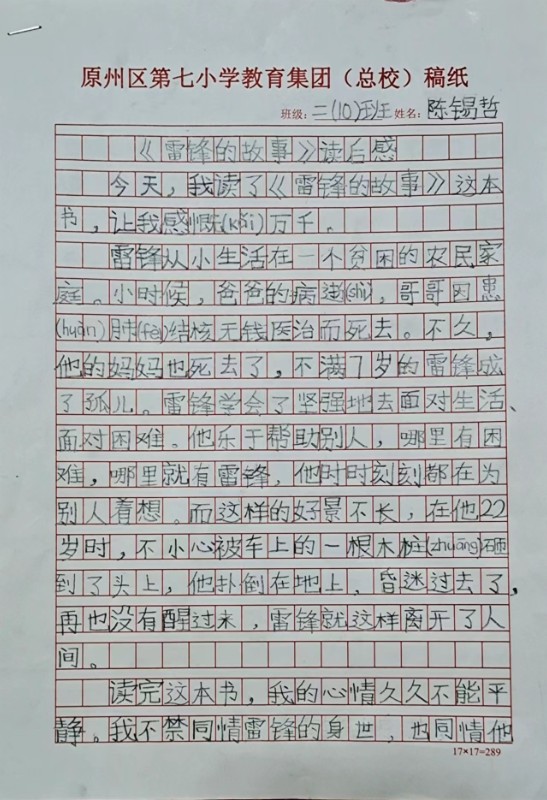 原州区第七小学教育集团（总校）稿纸
班级：二(10)班 姓名：陈锡哲
《雷锋的故事》读后感
今天，我读了《雷锋的故事》这本
书，让我感慨(kǎi)万千。
雷锋从小生活在一个贫困的农民家
庭。小时候，爸爸的病逝(shì)，哥哥因患
(huàn)肺(fèi)结核无钱医治而死去。不久，
他的妈妈也死去了，不满7岁的雷锋成
了孤儿。雷锋学会了坚强地去面对生活、
面对困难。他乐于帮助别人，哪里有困
难，哪里就有雷锋，他时时刻刻都在为
别人着想。而这样的好景不长，在他22
岁时，不小心被车上的一根木桩(zhuāng)砸
到了头上，他扑倒在地上，昏迷过去了，
再也没有醒过来，雷锋就这样离开了人
间。
读完这本书，我的心情久久不能平
静。我不禁同情雷锋的身世，也同情他
17×17=289